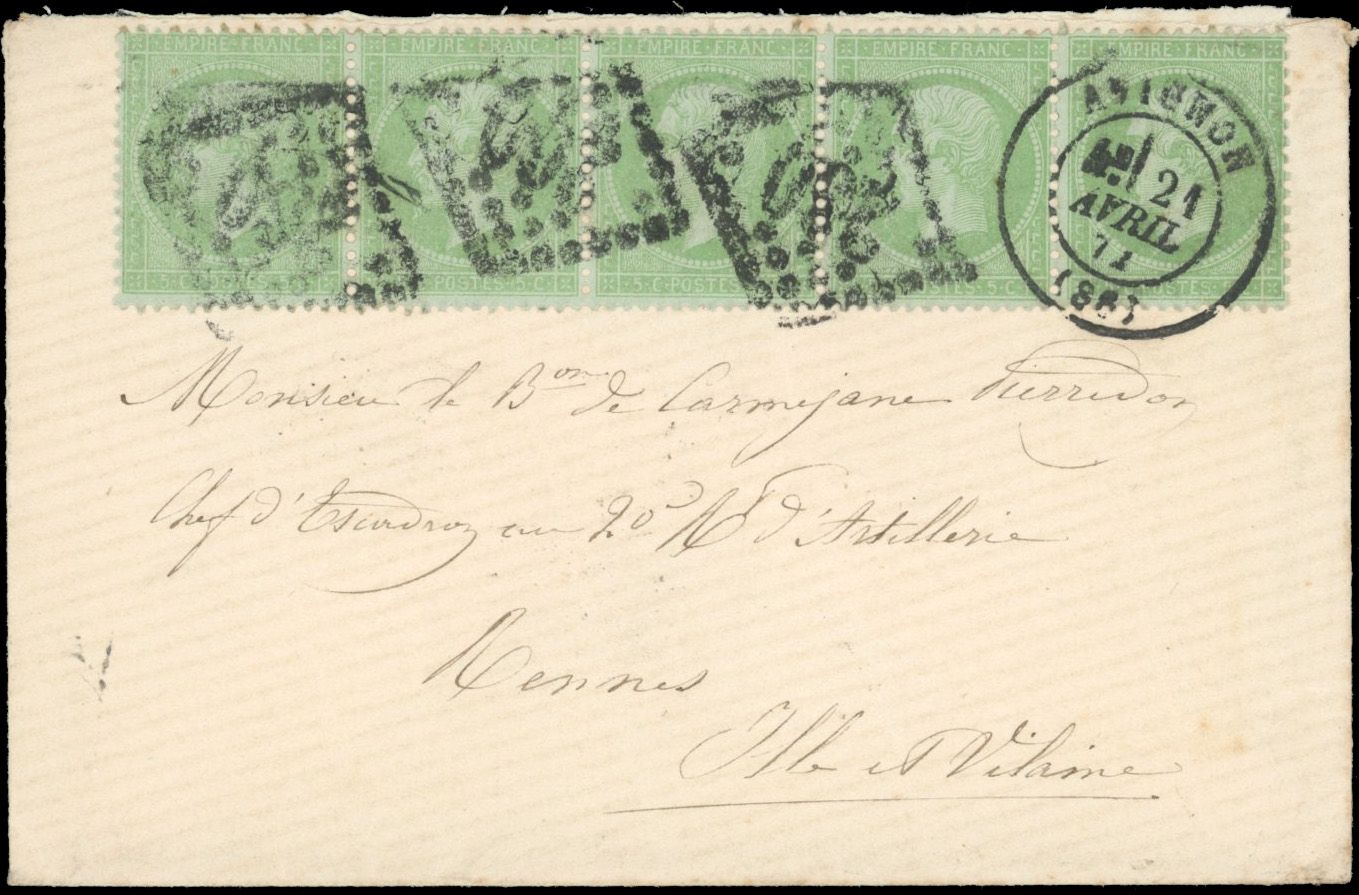 EMPIRE·FRANC EMPIRE·FRANC EMPIRE·FRANC EMPIRE·FRANC EMPIRE·FRANC
5·C·POSTES·5·C· POSTES·5·C· 5·C·POSTES·5·C· POSTES·5·C· POSTES·
AVIGNON
21
AVRIL
71
(86)
Monsieur le Bon de Carmejane Pierredon
Chef d'Escadron au 20e Rt d'Artillerie
Rennes
Ille et Vilaine